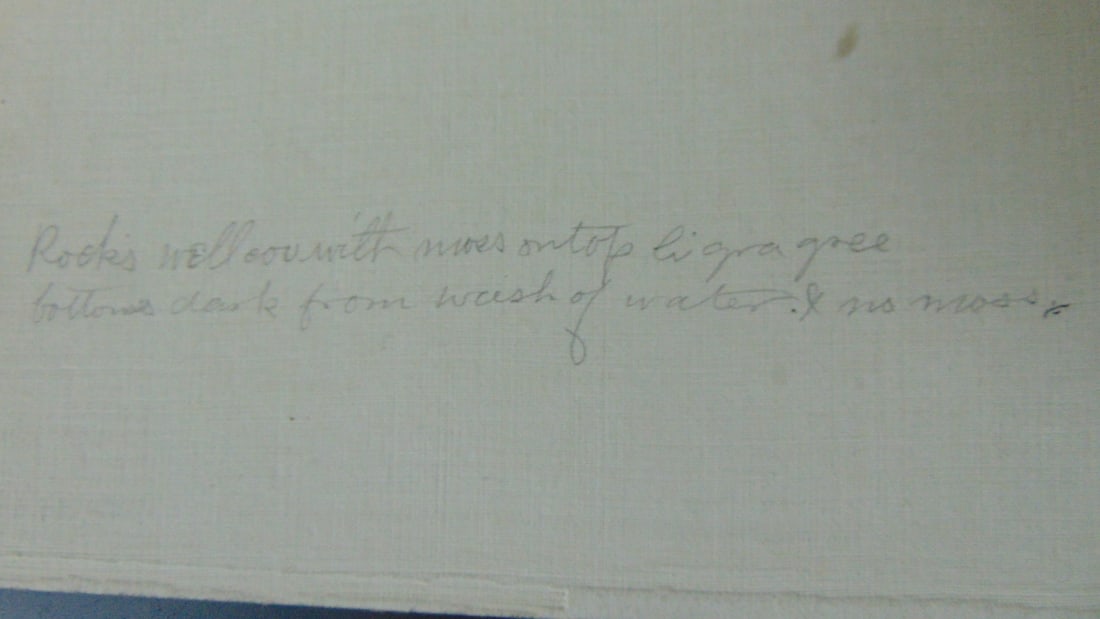 Rocks well cov with moss on top li gra gree
bottoms dark from wash of water. & no moss.